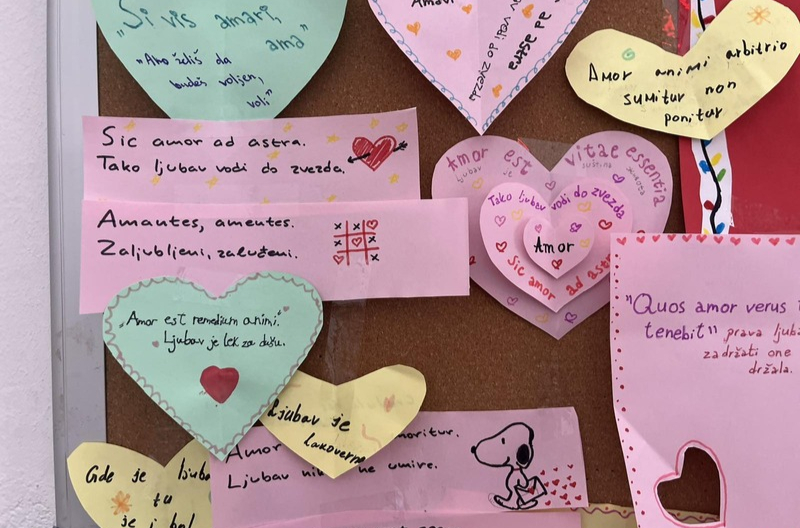 "Si vis amari,
ama"
"Ako želiš da
budeš voljen,
voli"
ad astra
vodi do zvezda
Amor animi arbitrio
sumitur non
ponitur
Sic amor ad astra.
Tako ljubav vodi do zvezda.
Amantes, amentes.
Zaljubljeni, zaluđeni.
Amor est vitae essentia
Ljubav je suština života
Tako ljubav vodi do zvezda
Amor
Sic amor ad astra
"Amor est remedium animi."
Ljubav je lek za dušu.
"Quos amor verus
tenebit" prava
zadržati one
držala.
Ljubav je
lakoverna
Amor moritur.
Ljubav ne umire.
Gde je
tu
je i